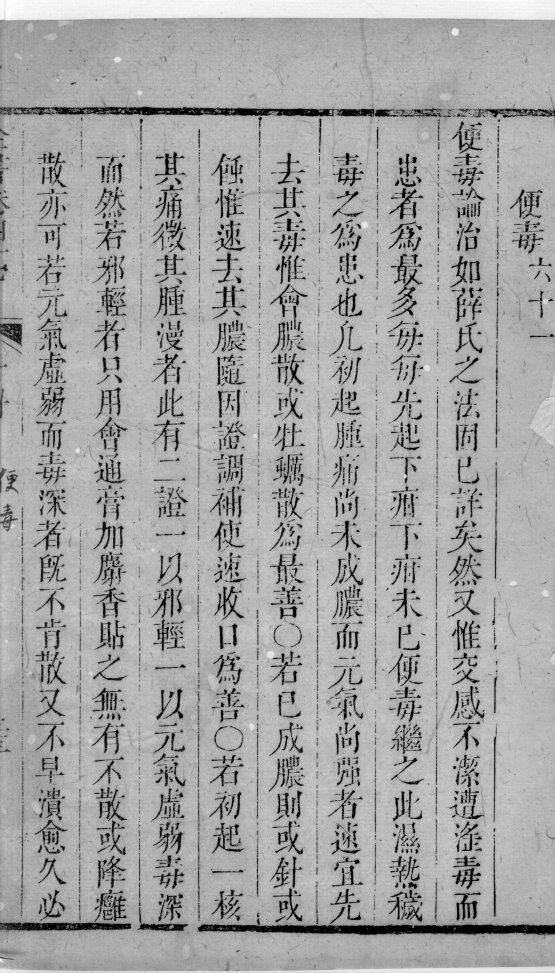 便毒六十一
便毒論治如薛氏之法固已詳矣然又惟交感不潔遭淫毒而
患者爲最多每每先起下疳下疳未已便毒繼之此濕熱穢
毒之爲患也凡初起腫痛尚未成膿而元氣尚强者速宜先
去其毒惟會膿散或牡蠣散爲最善○若已成膿則或針或
蝕惟速去其膿隨因證調補使速收口爲善○若初起一核
其痛微其腫漫者此有二證一以邪輕一以元氣虛弱毒深
而然若邪輕者只用會通膏加麝香貼之無有不散或降癰
散亦可若元氣虛弱而毒深者既不肯散又不早潰愈久必
便毒